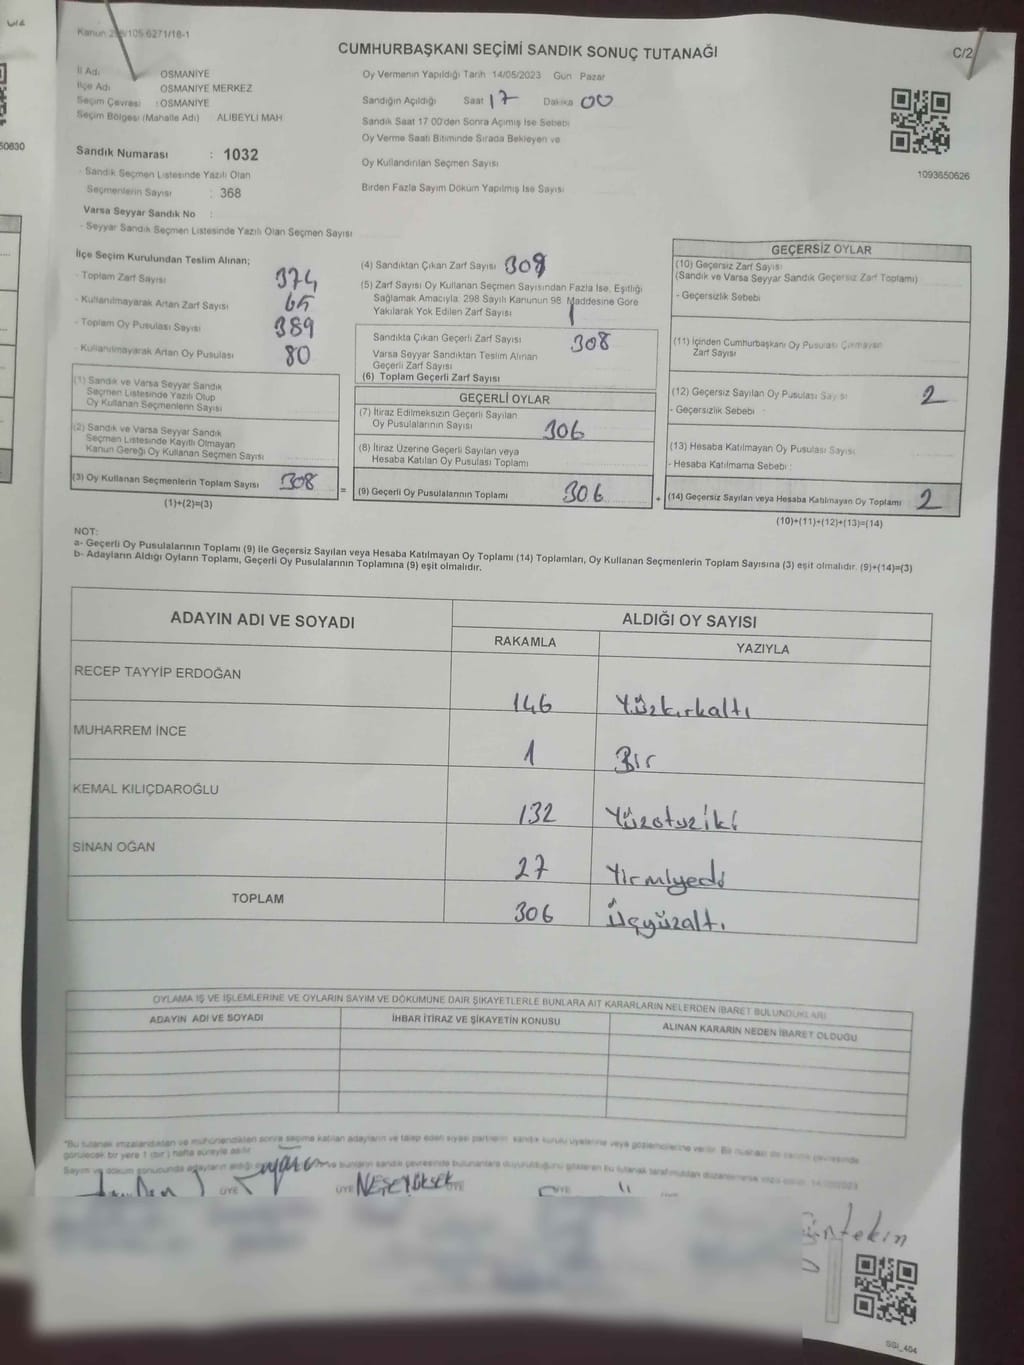 Kanun 298/105 6271/18-1
CUMHURBAŞKANI SEÇİMİ SANDIK SONUÇ TUTANAĞI
C/2
İl Adı OSMANİYE
İlçe Adı OSMANİYE MERKEZ
Seçim Çevresi : OSMANİYE
Seçim Bölgesi (Mahalle Adı) ALIBEYLI MAH
Oy Vermenin Yapıldığı Tarih 14/05/2023 Gün Pazar
Sandığın Açıldığı Saat 17 Dakika 00
Sandık Saat 17 00'den Sonra Açımış İse Sebebi
Oy Verme Saati Bitiminde Sırada Bekleyen ve
Oy Kullandırılan Seçmen Sayısı
Birden Fazla Sayım Döküm Yapılmış İse Sayısı
1093650626
50630
Sandık Numarası : 1032
- Sandık Seçmen Listesinde Yazılı Olan
Seçmenlerin Sayısı : 368
Varsa Seyyar Sandık No :
- Seyyar Sandık Seçmen Listesinde Yazılı Olan Seçmen Sayısı
İlçe Seçim Kurulundan Teslim Alınan;
- Toplam Zarf Sayısı 374
- Kullanılmayarak Artan Zarf Sayısı
- Toplam Oy Pusulası Sayısı 389
- Kullanılmayarak Artan Oy Pusulası 80
(1) Sandık ve Varsa Seyyar Sandık
Seçmen Listesinde Yazılı Olup
Oy Kullanan Seçmenlerin Sayısı
(2) Sandık ve Varsa Seyyar Sandık
Seçmen Listesinde Kayıtlı Olmayan
Kanun Gereği Oy Kullanan Seçmen Sayısı
(3) Oy Kullanan Seçmenlerin Toplam Sayısı 308
(1)+(2)=(3)
=
(4) Sandıktan Çıkan Zarf Sayısı 309
(5) Zarf Sayısı Oy Kullanan Seçmen Sayısından Fazla İse, Eşitliği
Sağlamak Amacıyla; 298 Sayılı Kanunun 98. Maddesine Göre
Yakılarak Yok Edilen Zarf Sayısı 1
Sandıkta Çıkan Geçerli Zarf Sayısı 308
Varsa Seyyar Sandıktan Teslim Alınan
Geçerli Zarf Sayısı
(6) Toplam Geçerli Zarf Sayısı
GEÇERLİ OYLAR
(7) İtiraz Edilmeksizin Geçerli Sayılan
Oy Pusulalarının Sayısı 306
(8) İtiraz Üzerine Geçerli Sayılan veya
Hesaba Katılan Oy Pusulası Toplamı
(9) Geçerli Oy Pusulalarının Toplamı 306
+
GEÇERSİZ OYLAR
(10) Geçersiz Zarf Sayısı
(Sandık ve Varsa Seyyar Sandık Geçersiz Zarf Toplamı)
- Geçersizlik Sebebi
(11) İçinden Cumhurbaşkanı Oy Pusulası Çıkmayan
Zarf Sayısı
(12) Geçersiz Sayılan Oy Pusulası Sayısı 2
- Geçersizlik Sebebi :
(13) Hesaba Katılmayan Oy Pusulası Sayısı
- Hesaba Katılmama Sebebi :
(14) Geçersiz Sayılan veya Hesaba Katılmayan Oy Toplamı 2
(10)+(11)+(12)+(13)=(14)
NOT:
a- Geçerli Oy Pusulalarının Toplamı (9) ile Geçersiz Sayılan veya Hesaba Katılmayan Oy Toplamı (14) Toplamları, Oy Kullanan Seçmenlerin Toplam Sayısına (3) eşit olmalıdır. (9)+(14)=(3)
b- Adayların Aldığı Oyların Toplamı, Geçerli Oy Pusulalarının Toplamına (9) eşit olmalıdır.
ADAYIN ADI VE SOYADI ALDIĞI OY SAYISI
RAKAMLA YAZIYLA
RECEP TAYYİP ERDOĞAN 146 Yüzkırkaltı
MUHARREM İNCE 1 Bir
KEMAL KILIÇDAROĞLU 132 Yüzotuziki
SİNAN OĞAN 27 Yirmiyedi
TOPLAM 306 Üçyüzaltı
OYLAMA İŞ VE İŞLEMLERİNE VE OYLARIN SAYIM VE DÖKÜMÜNE DAİR ŞİKAYETLERLE BUNLARA AİT KARARLARIN NELERDEN İBARET BULUNDUKLARI
ADAYIN ADI VE SOYADI İHBAR İTİRAZ VE ŞİKAYETİN KONUSU ALINAN KARARIN NEDEN İBARET OLDUĞU
*Bu tutanak imzalandıktan ve mühürlendikten sonra seçime katılan adayların ve talep eden siyasi partilerin sandık kurulu üyelerine veya gözlemcilerine verilir. Bir nüshası da sandık çevresinde
görülecek bir yere 1 (bir) hafta süreyle asılır.
ÜYE ÜYE NEŞE YÜKSEK ÜYE ÜYE
SGI_404